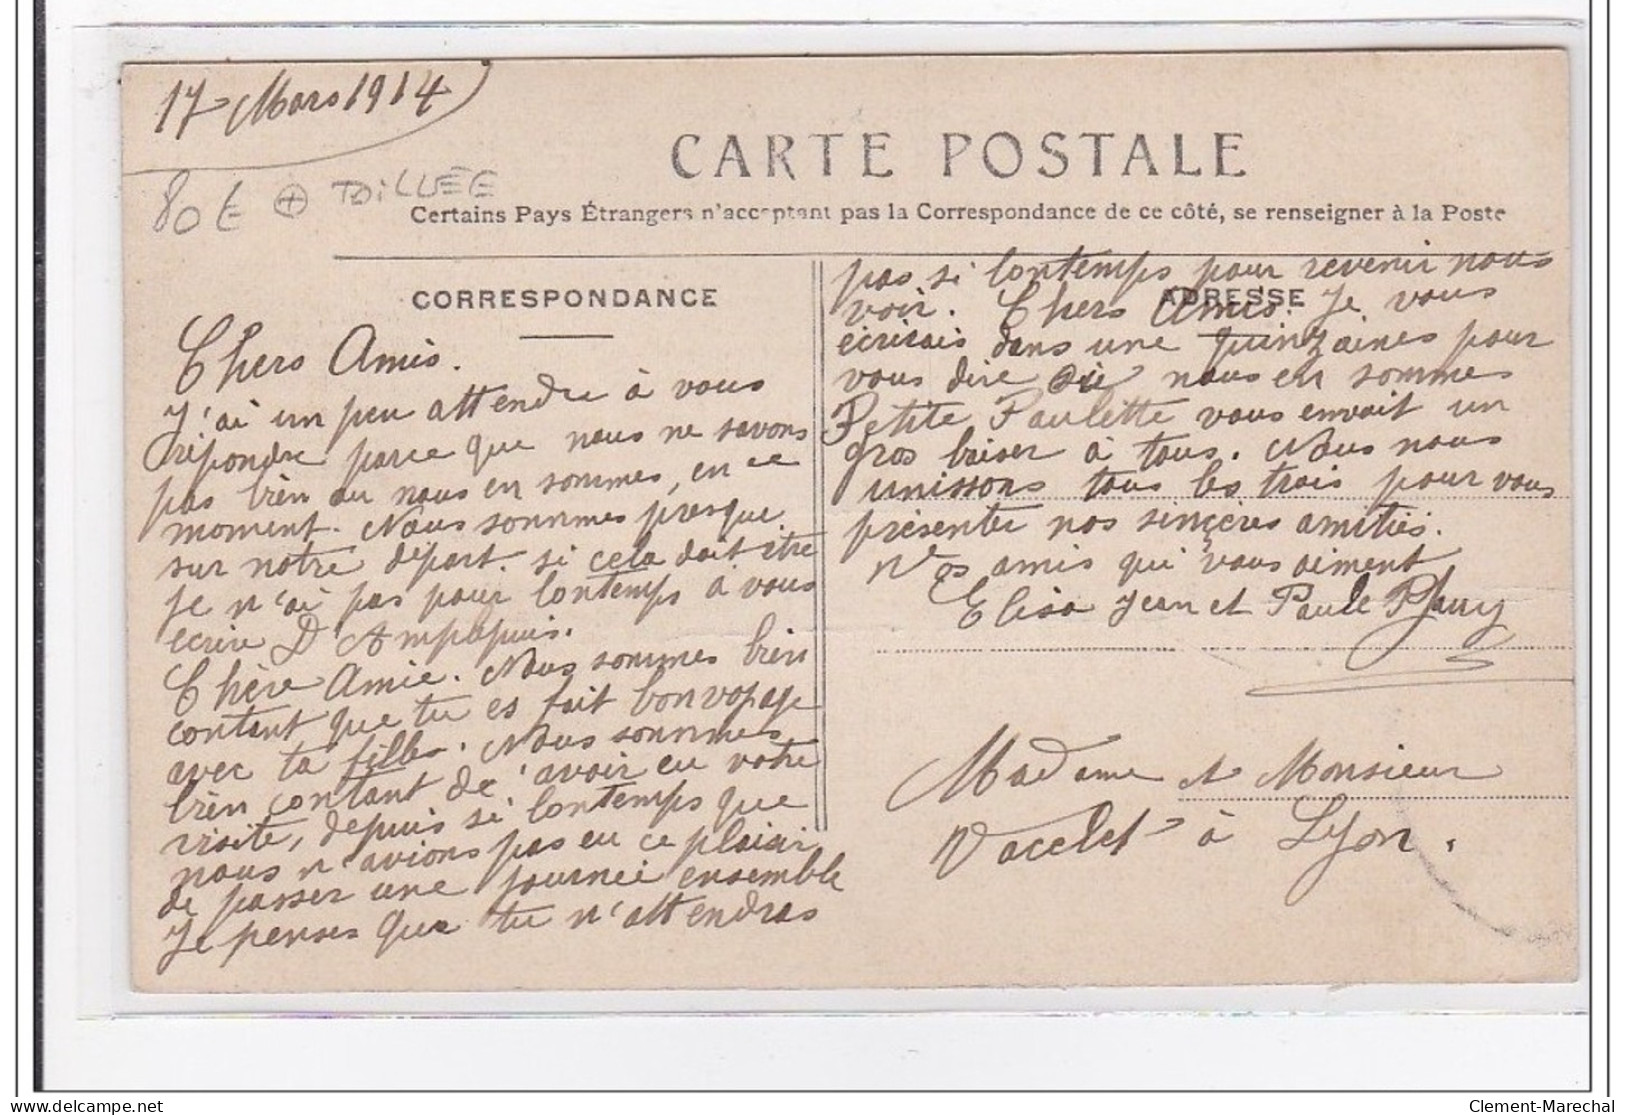 17 Mars 1914
80 € TOILLÉE
CARTE POSTALE
Certains Pays Étrangers n'acceptant pas la Correspondance de ce côté, se renseigner à la Poste
CORRESPONDANCE
Chers Amis.
J'ai un peu attendre à vous
répondre parce que nous ne savons
pas bien ou nous en sommes, en ce
moment. Nous sommes presque
sur notre départ. si cela doit être
Je n'ai pas pour lontemps à vous
ecrire D'Ampepuis.
Chère Amie. Nous sommes bien
contant que tu es fait bon voyage
avec ta fille. Nous sommes
bien contant de'avoir eu votre
visite, depuis si lontemps que
nous n'avions pas eu ce plaisir
de passer une journeé ensemble
Je penses que tu n'attendras
pas si lontemps pour revenir nous
voir. Chers Amis. Je vous
ADRESSE
écrirais dans une quinzaines pour
vous dire où nous en sommes
Petite Paulette vous envoit un
gros baiser à tous. Nous nous
unissons tous les trois pour vous
présenter nos sinçères amitiés.
Vos amis qui vous aiment
Elisa Jean et Paule
Madame et Monsieur
Vacelet à Lyon.
Clement-Marechal